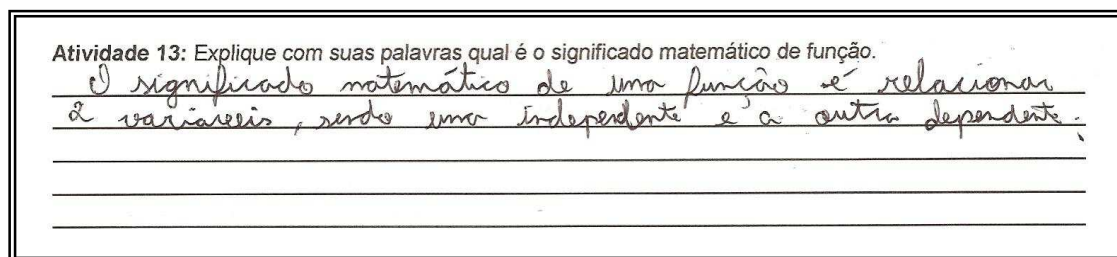 Atividade 13: Explique com suas palavras qual é o significado matemático de função.
O significado matemático de uma função é relacionar
2 variaveis, sendo uma independente e a outra dependente.